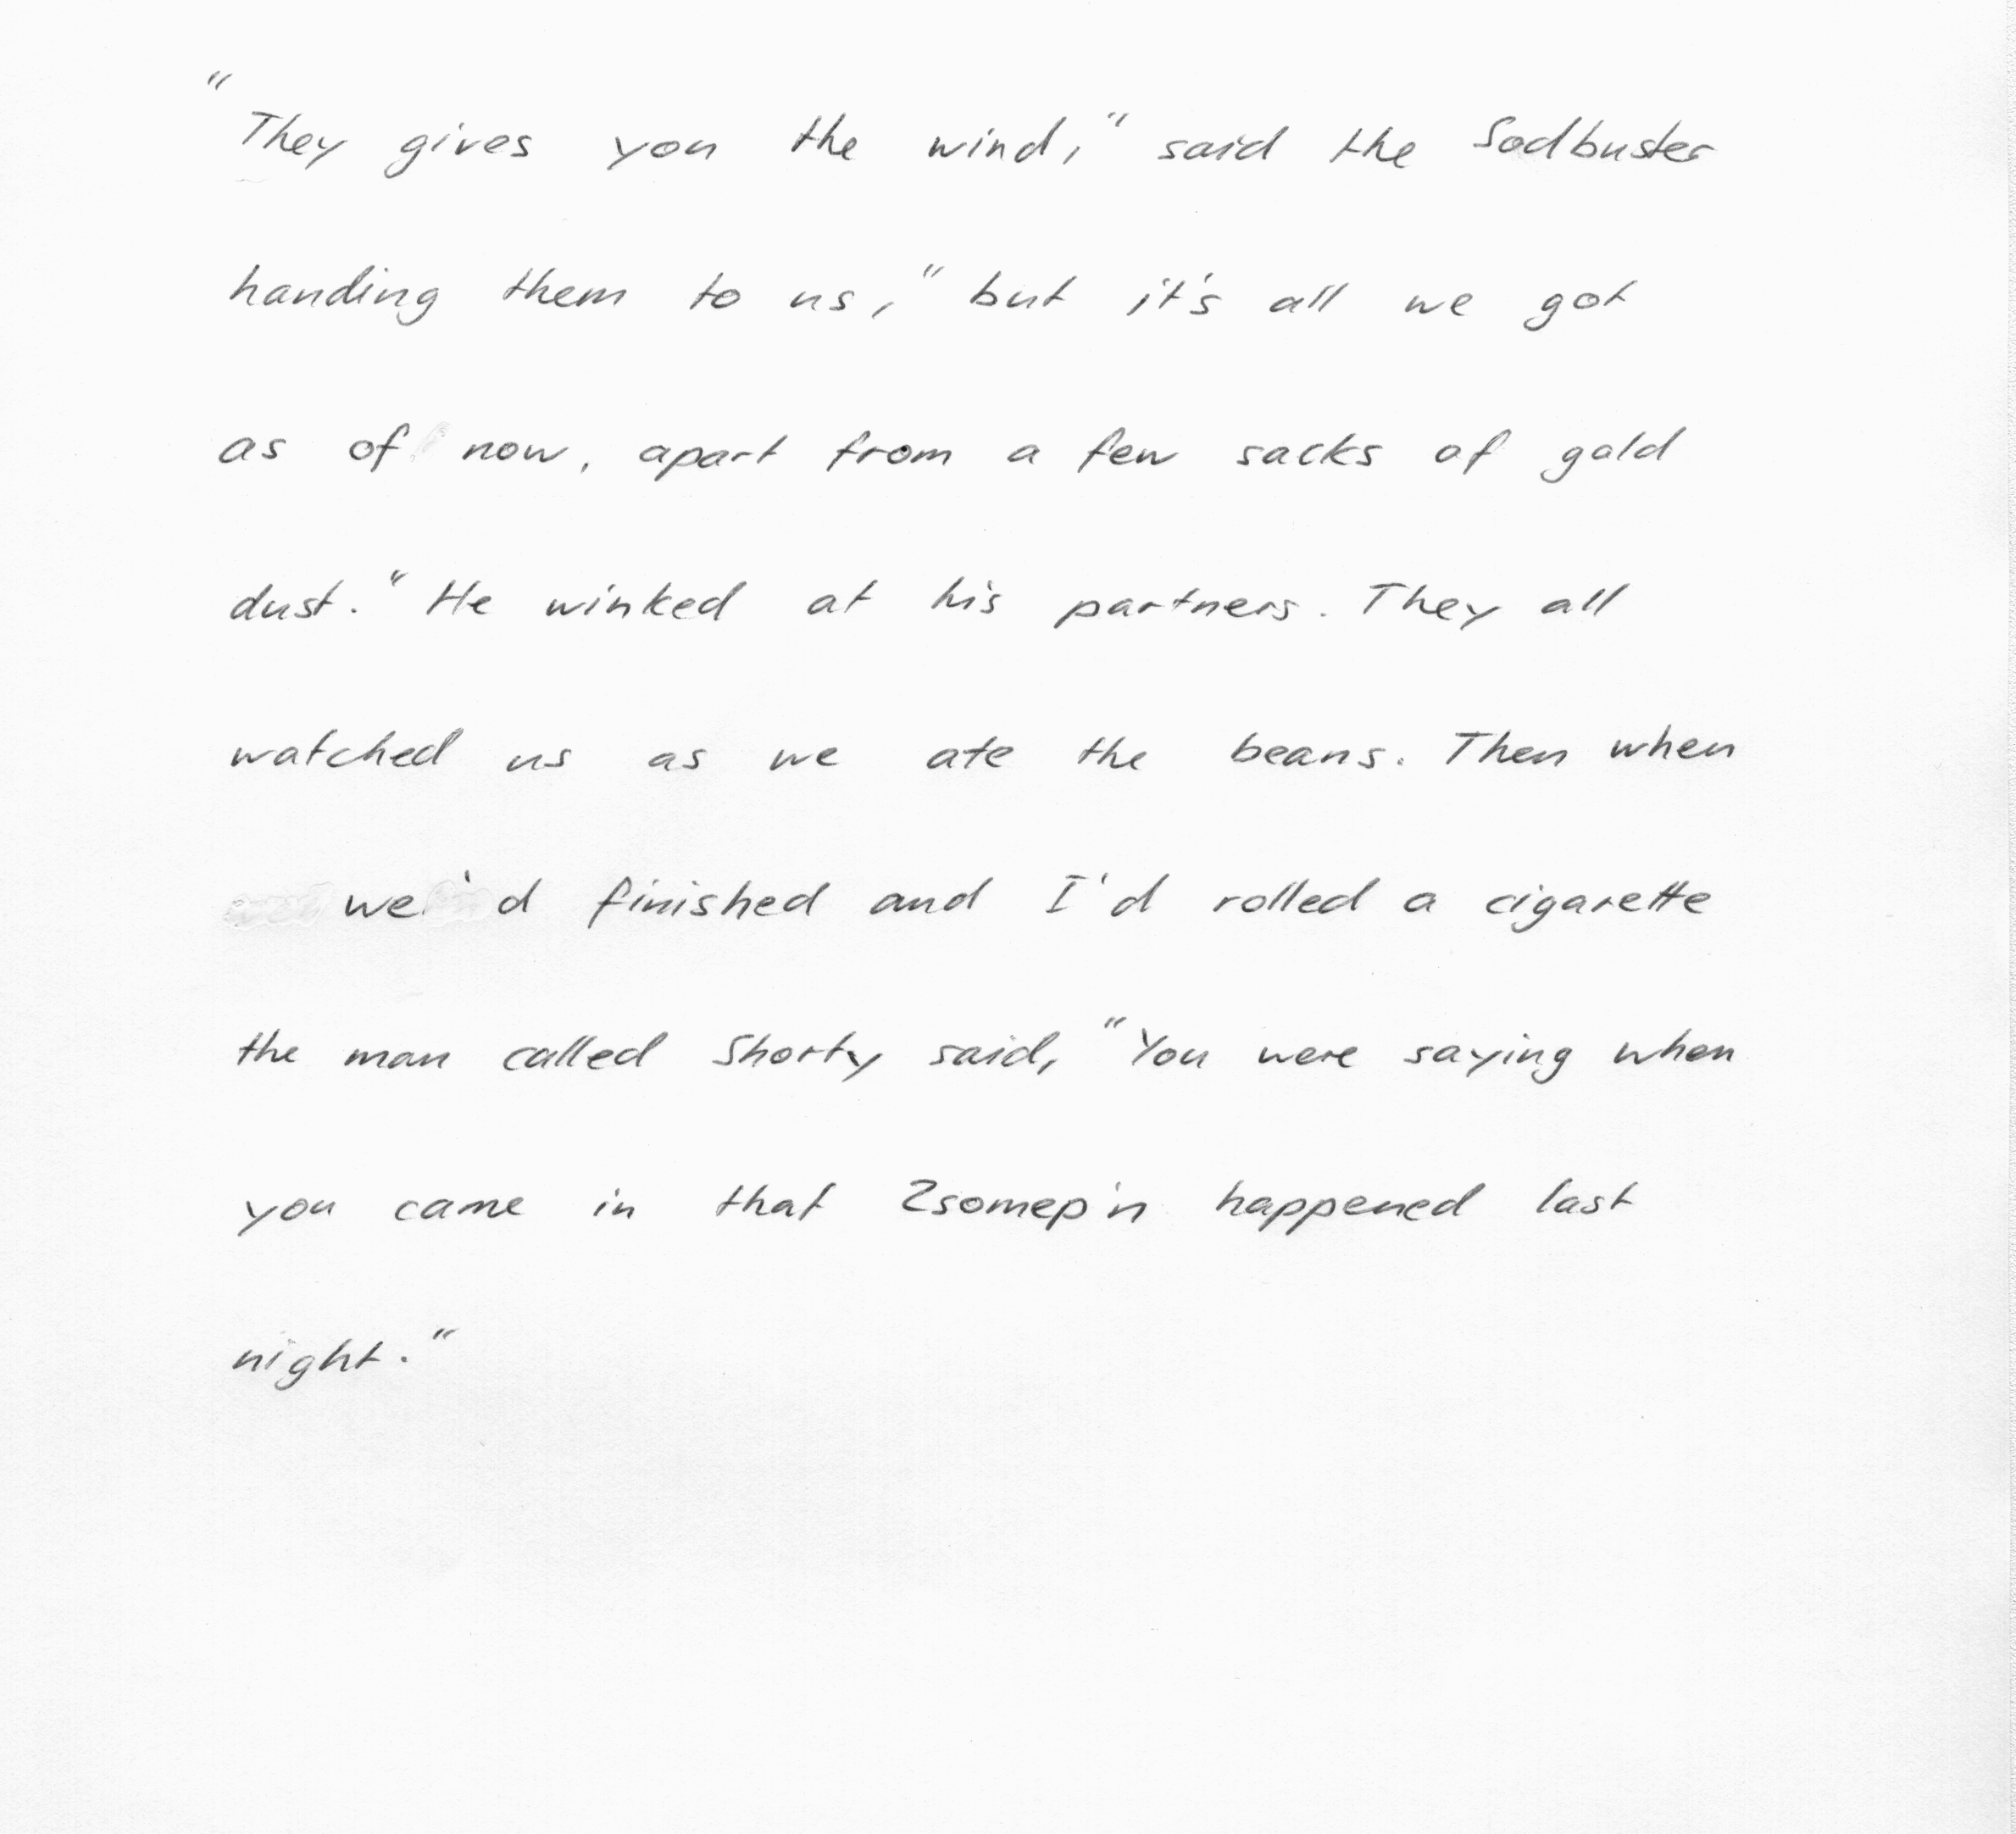 "They gives you the wind," said the Sodbuster
handing them to us," but it's all we got
as of now, apart from a few sacks of gold
dust." He winked at his partners. They all
watched us as we ate the beans. Then when
we'd finished and I'd rolled a cigarette
the man called Shorty said, "You were saying when
you came in that 2somep'n happened last
night."